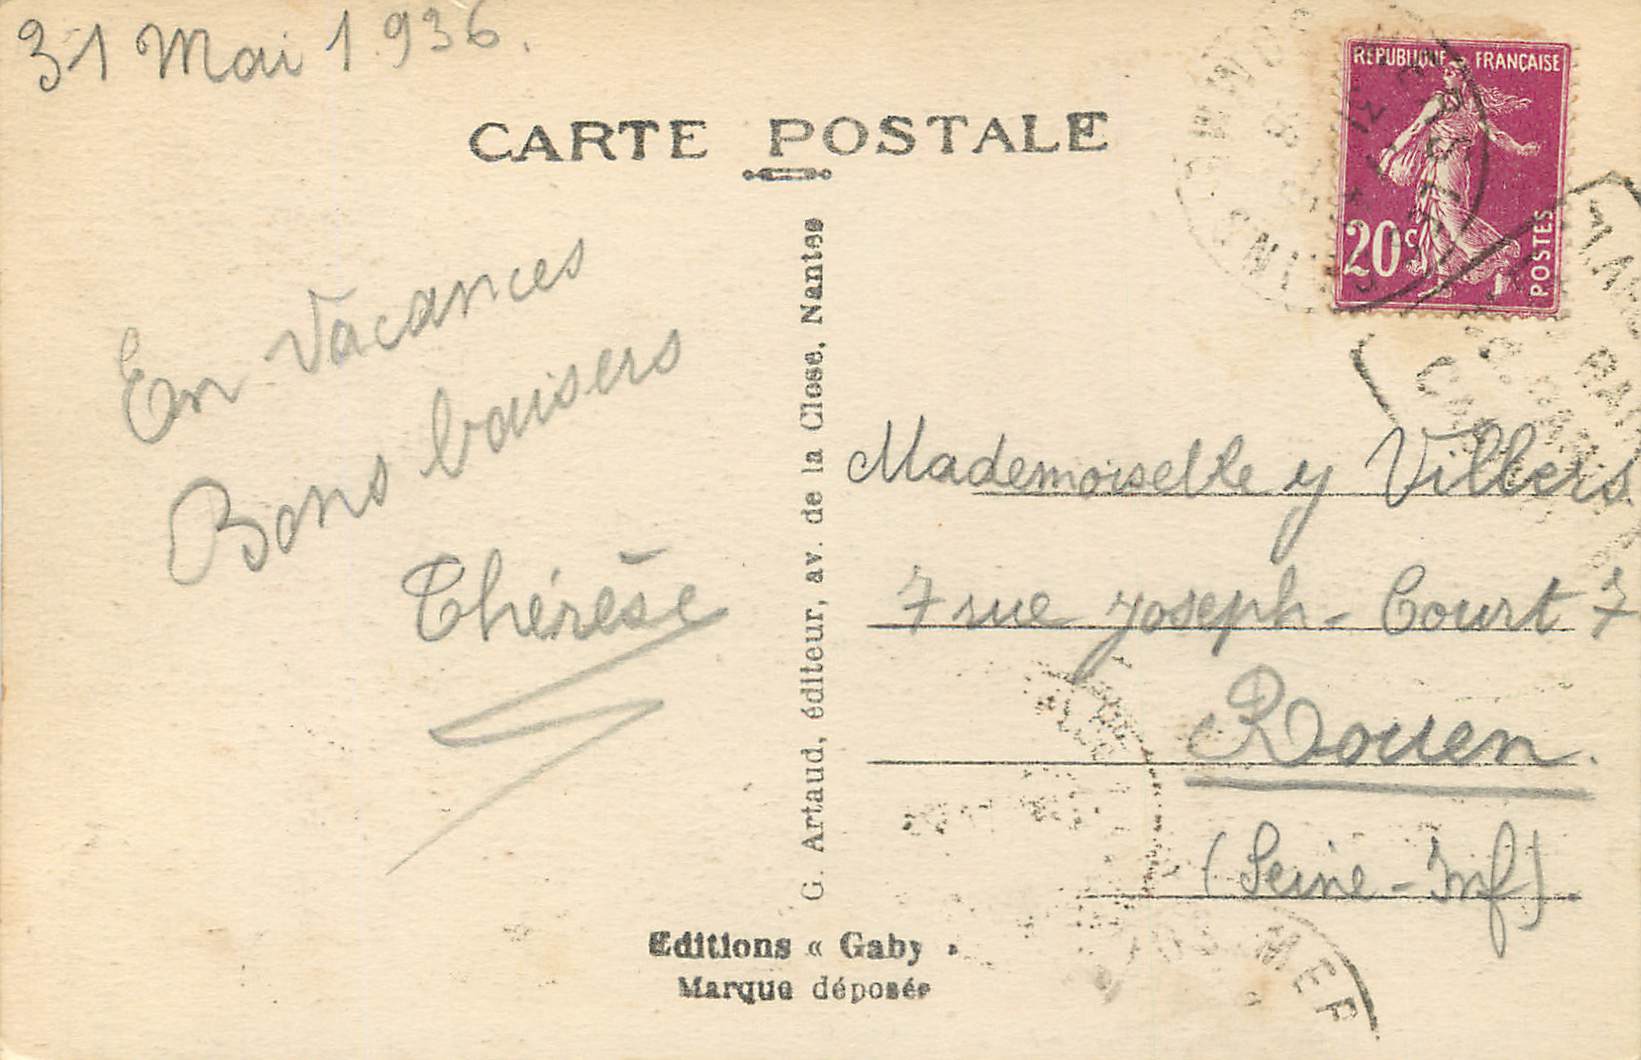 31 Mai 1936.
CARTE POSTALE
REPUBLIQUE FRANÇAISE
20c
POSTES
En Vacances
Bons baisers
Thérèse
G. Artaud, éditeur, av. de la Close, Nantes
Mademoiselle y Villers
7 rue joseph-Court 7
Rouen.
(Seine-Inf).
Editions « Gaby »
Marque déposée
MER